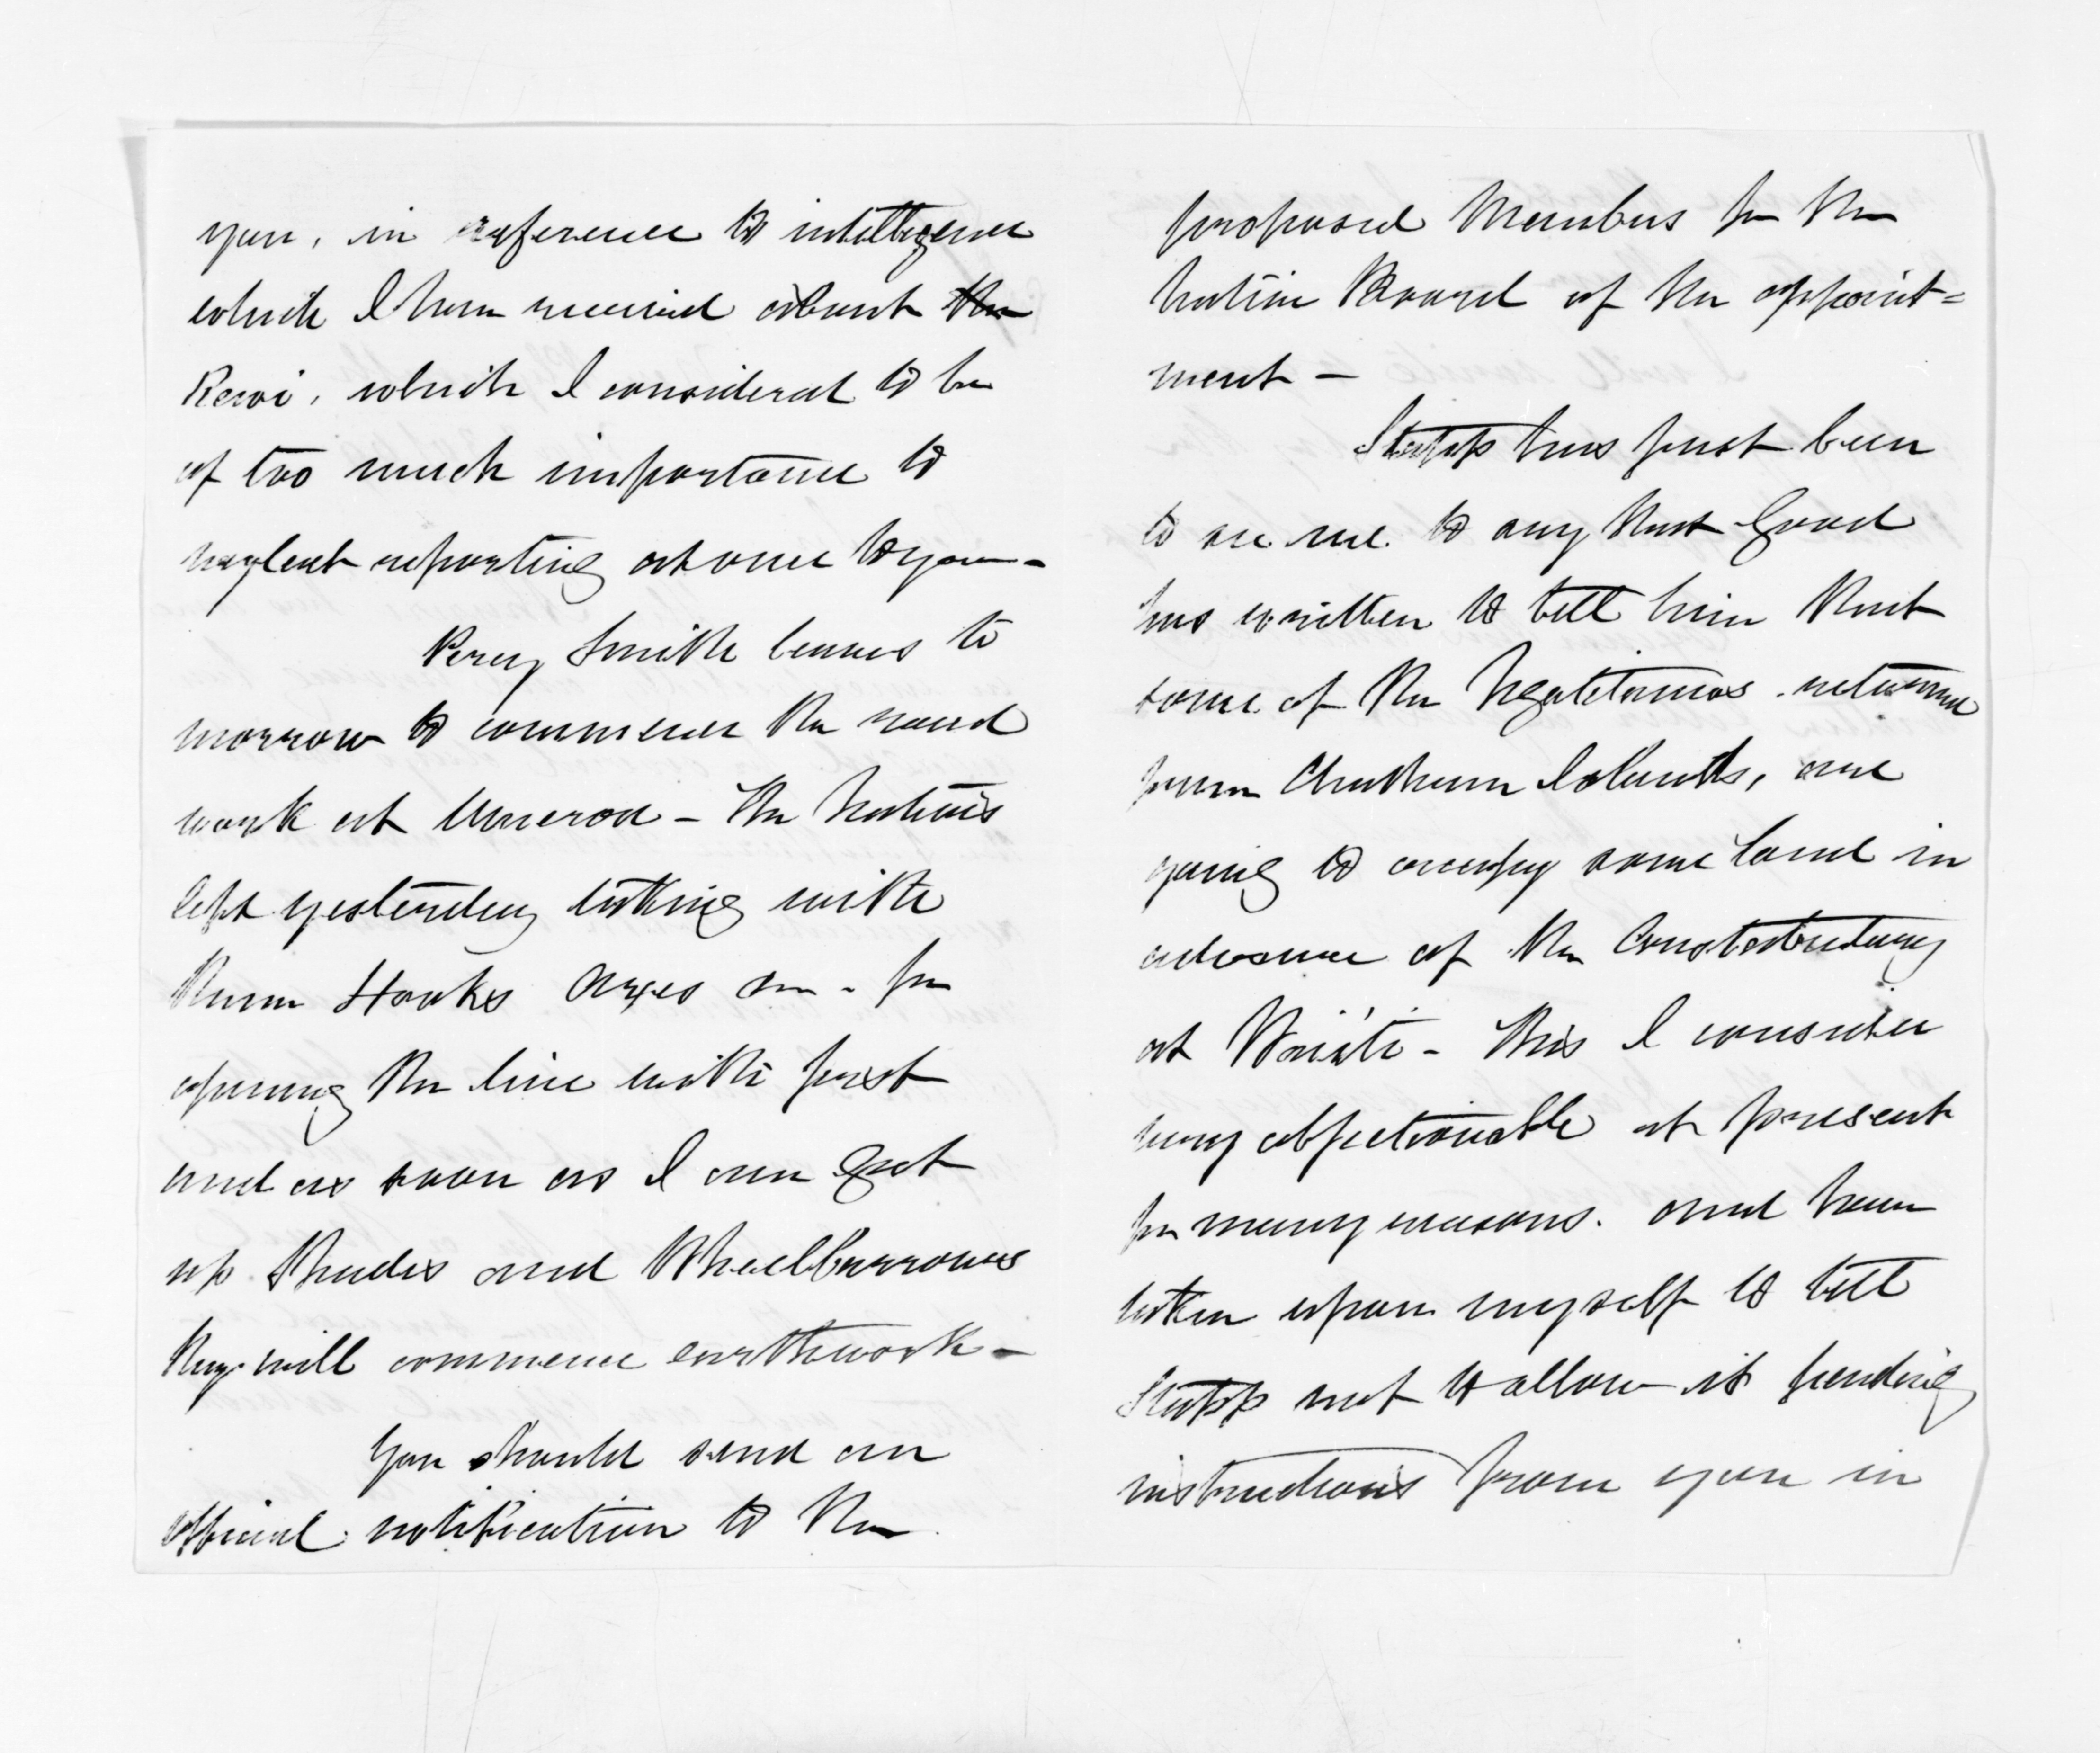 you, in reference to intelligence
which I have received about the
Rewi, which I considered to be
of too much importance to
neglect reporting at once to you -
Percy Smith leaves to
morrow to commence the road
work at - the Natives
left yesterday taking with
them Hooks Axes &c - for
opening the line with first
and as soon as I can get
up Spades and Wheelbarrows
they will commence earthwork -
You should send an
official notification to the
proposed Members for the
Native Board of the appoint=
ment -
Stapp has just been
to see me to say that Good
has written to tell him that
some of the Ngatitamas returned
from Chatham Islands, are
going to occupy some land in
advance of the Constabulary
at Waiiti - this I consider
very objectionable at present
for many reasons. and have
taken upon myself to tell
Stapp not to allow it pending
instructions from you in